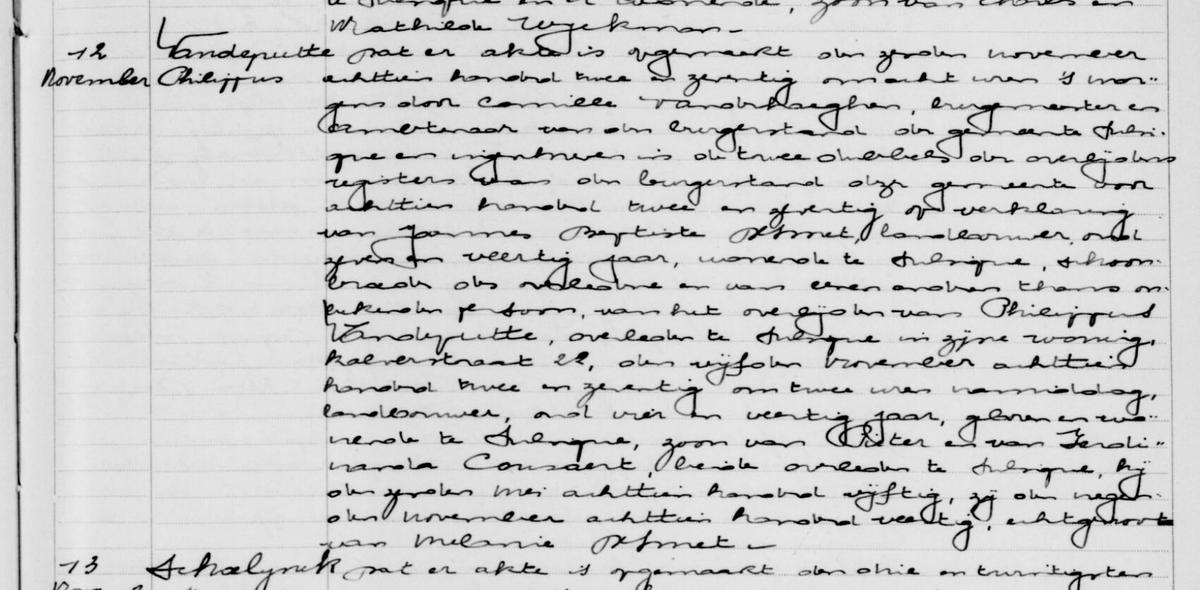 te Sulsique en er wonende, zoon van Charles en
Mathilde Wyckman -
12 Vandeputte Dat er akte is opgemaakt den zesden november
November Philippus achttien honderd twee en zeventig om acht uren 's mor-
gens door Camille Vanderhaeghen, burgemeester en
ambtenaar van den burgerstand der gemeente Sulsi-
que en ingeschreven in de twee dubbels der overlijdens
registers van den burgerstand dezer gemeente voor
achttien honderd twee en zeventig op verklaring
van Joannes Baptiste De Smet, landbouwer, oud
zeven en veertig jaar, wonende te Sulsique, schoon-
broeder des overledene en van eenen anderen thans on-
bekenden persoon, van het overlijden van Philippus
Vandeputte, overleden te Sulsique in zijne woning,
Kalverstraat 22, den vijfden November achttien
honderd twee en zeventig om twee uren namiddag,
landbouwer, oud vier en veertig jaar, geboren en wo-
nende te Sulsique, zoon van Pieter en van Ferdi-
nanda Cousaert, beide overleden te Sulsique, hij
den zesden Mei achttien honderd vijftig, zij den negen-
den November achttien honderd veertig, echtgenoote
van Melanie De Smet -
13 Schoelynck Dat er akte is opgemaakt den drie en twintigsten